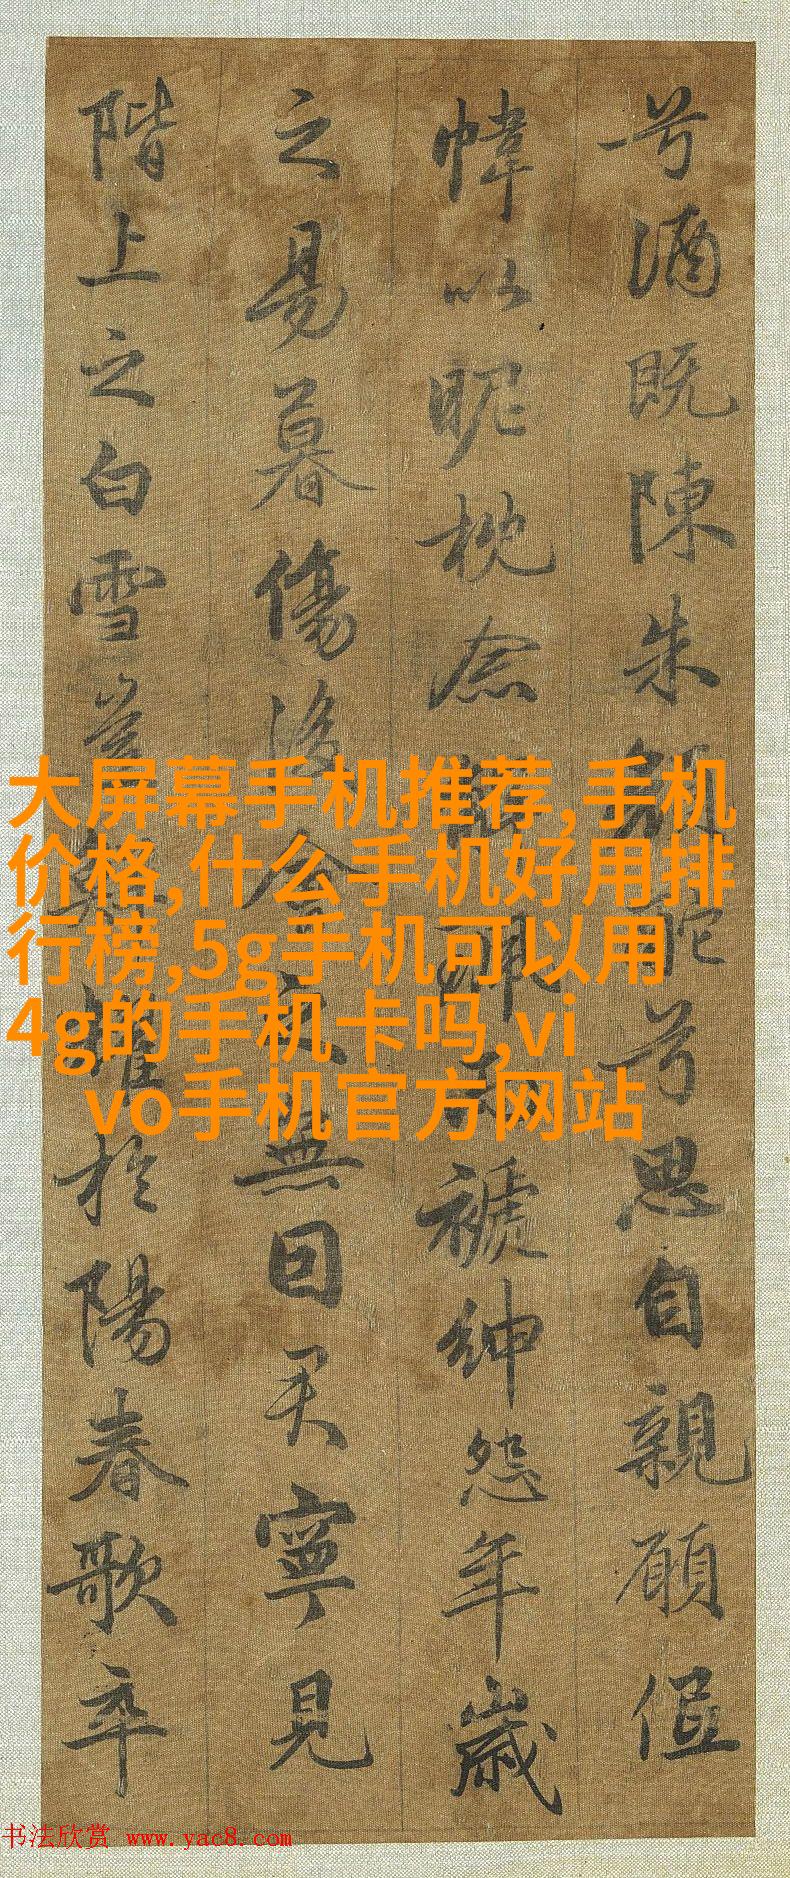 兮酒既陳朱顏酡兮思自親願低
幃以昵枕念解珮而褫紳怨年歲
之易暮傷後會之無因君寧見
階上之白雪豈鮮耀於陽春歌卒
大屏幕手机推荐,手机
价格,什么手机好用排
行榜,5g手机可以用
4g的手机卡吗,vi
vo手机官方网站
书法欣赏 www.yac8.com